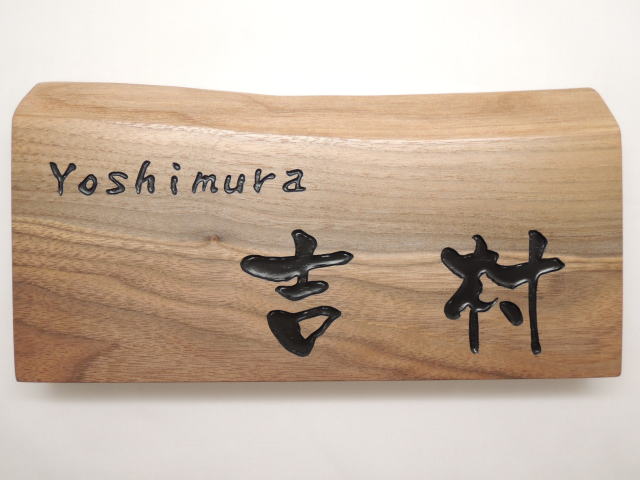 Yoshimura
吉村